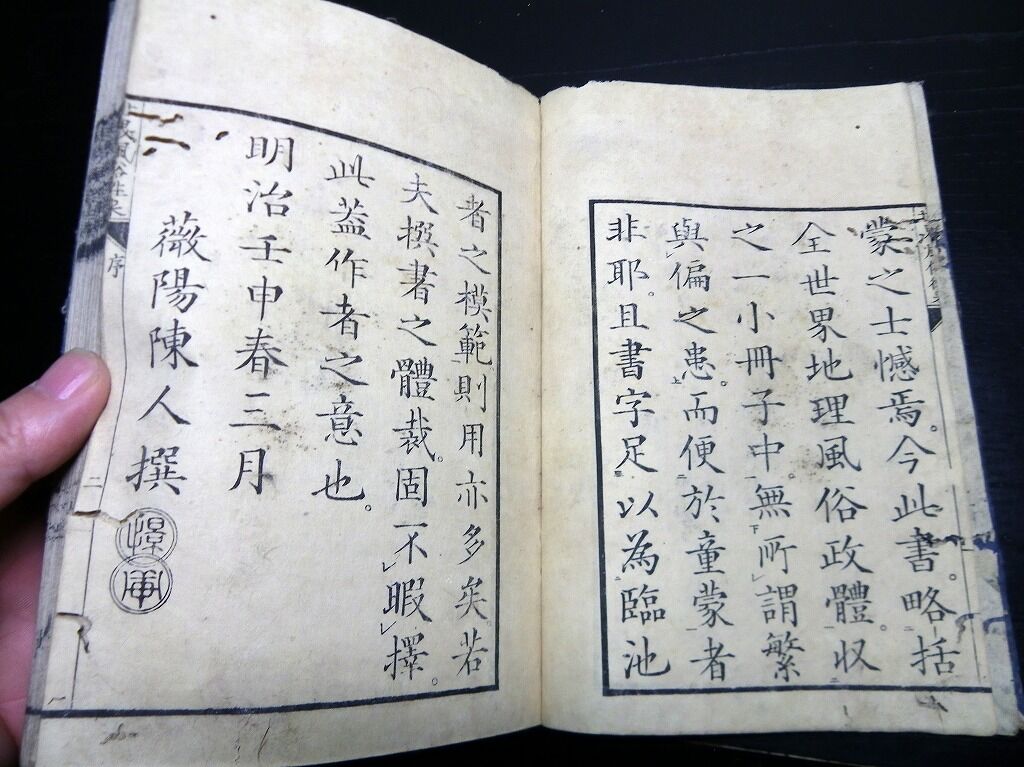 蒙之士憾焉。今此書。略括
全世界地理風俗政體。収
之一小冊子中。無所謂繁
與偏之患。而便於童蒙者
非耶。且書字足以為臨池
者之模範則用亦多矣。若
夫撰書之體裁。固不暇擇。
此蓋作者之意也。
明治壬申春三月
薇陽陳人撰
序
二